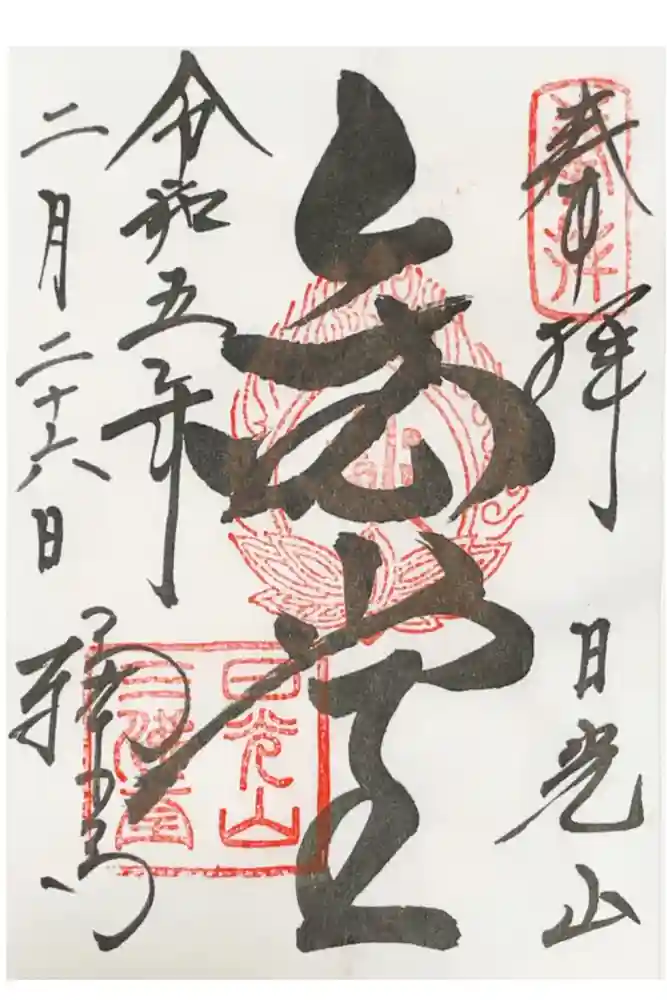 奉拝　日光山
金堂
令和五年
二月二十六日
輪王寺
日光山
三佛堂